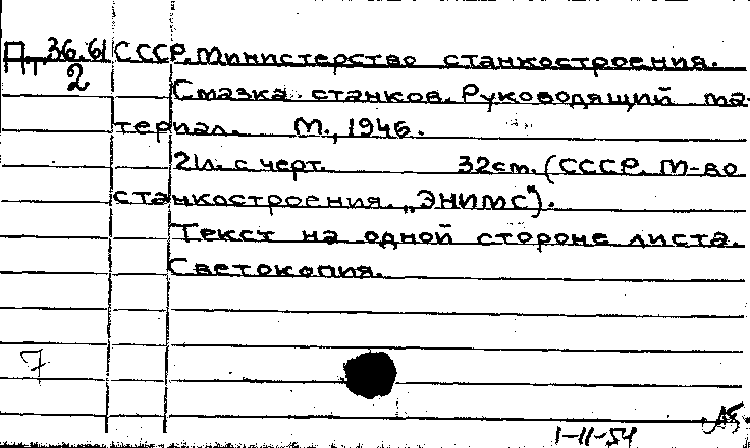 П.т 36.61 СССР. Министерство станкостроения.
2 Смазка станков. Руководящий ма-
териал. М., 1946.
21л. с черт. 32см. (СССР. М-во
станкостроения. "ЭНИМС").
Текст на одной стороне листа.
Светокопия.
7
1-11-54